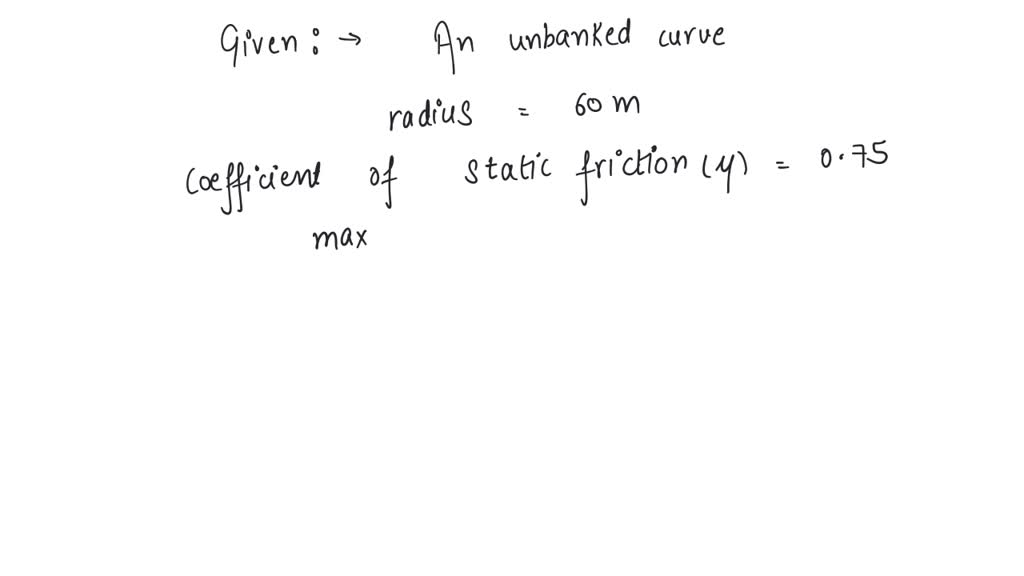 Given: → An unbanked curve
radius = 60 m
Coefficient of static friction (μ) = 0.75
max